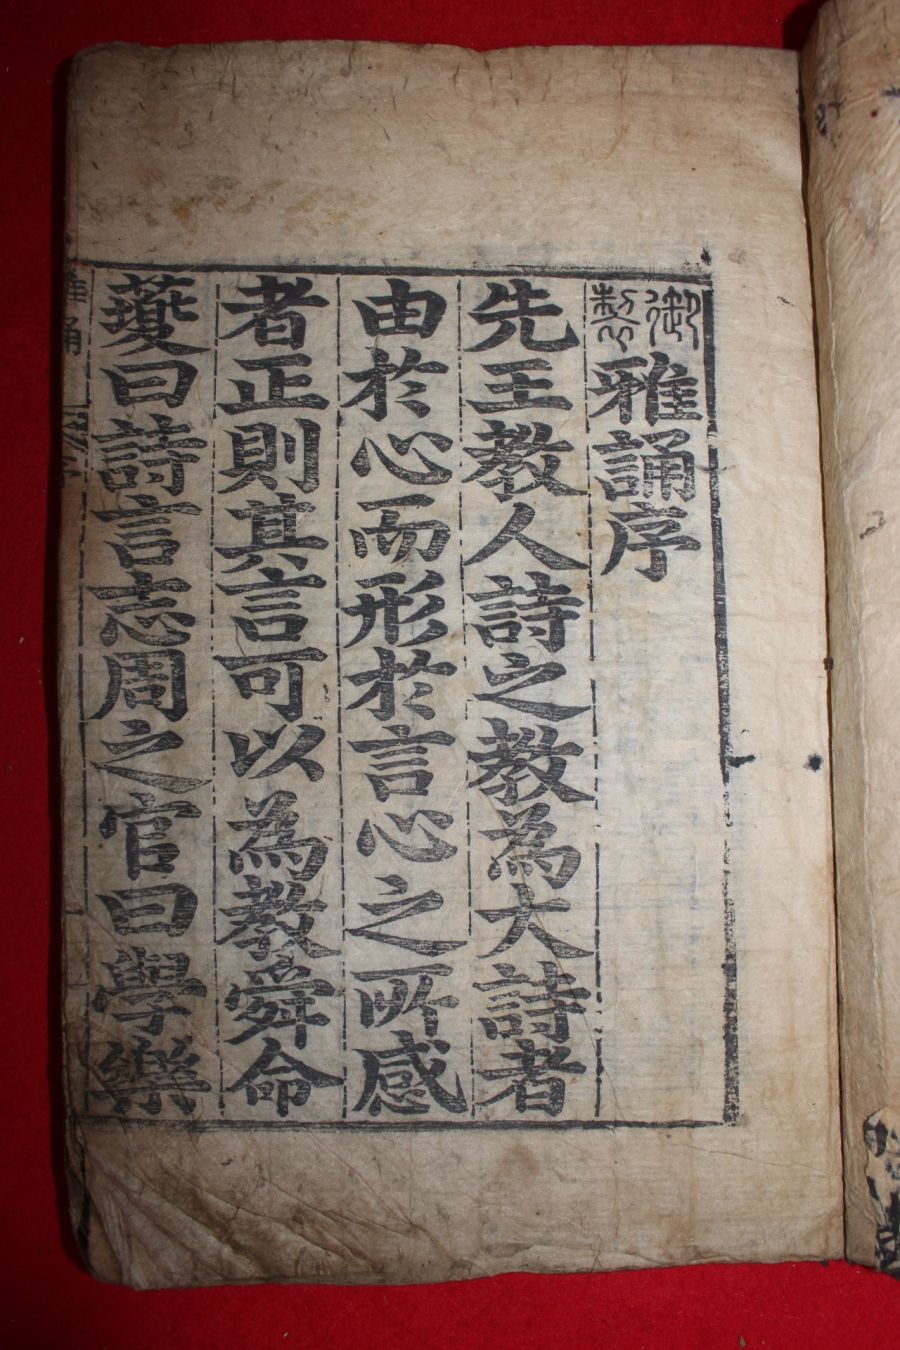 御製雅誦序
先王教人詩之教為大詩者
由於心而形於言心之所感
者正則其言可以為教舜命
夔曰詩言志周之官曰學樂
雅誦